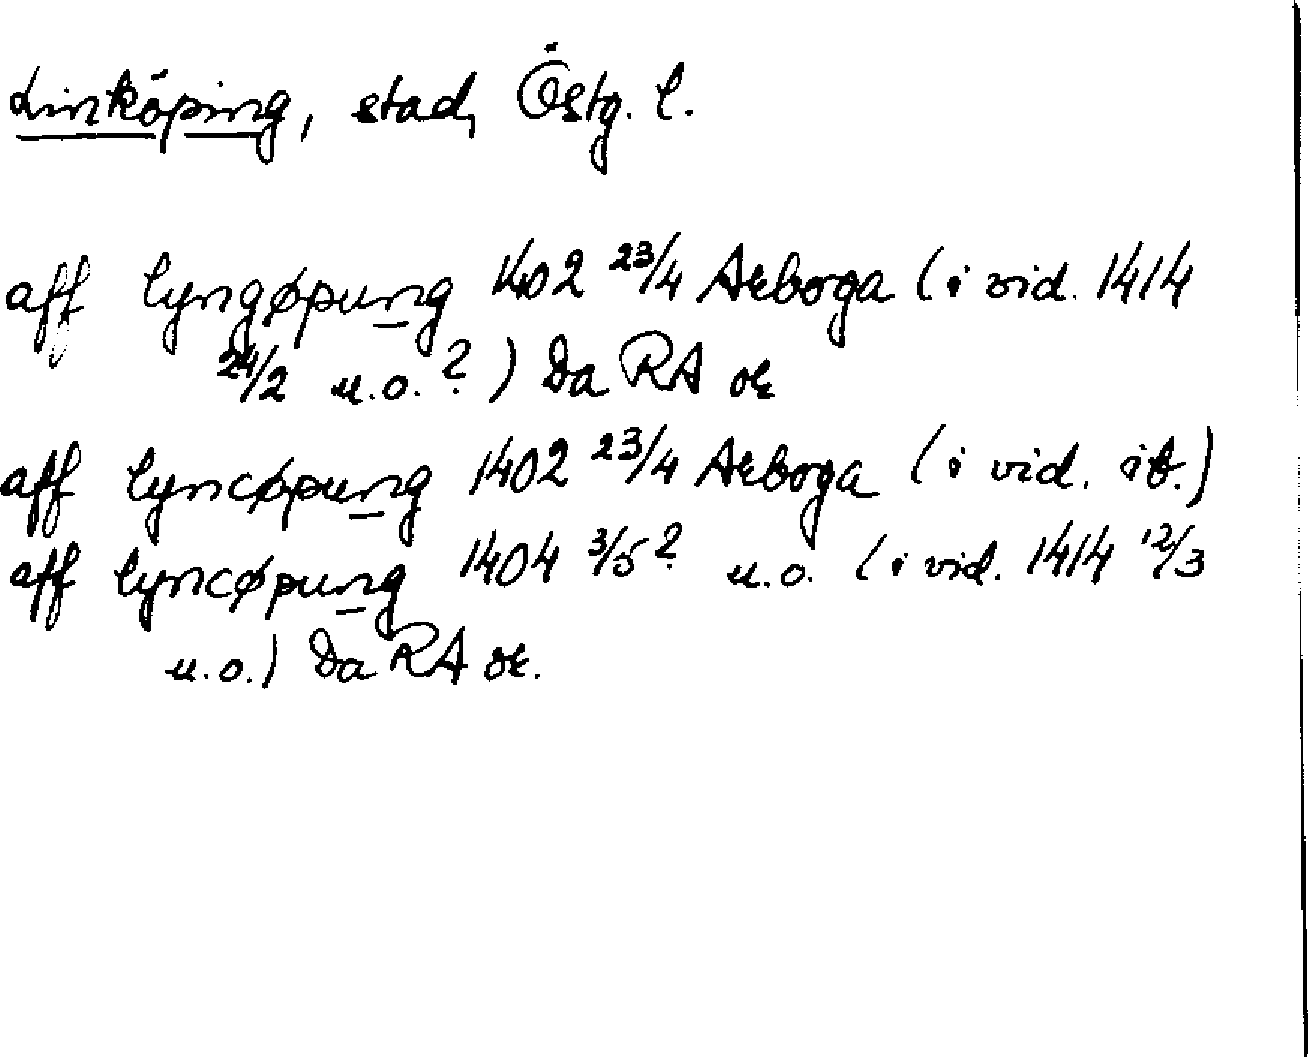 Linköping, stad, Östg. l.
aff lyngøpung 1402 23/4 Arboga (i vid. 1414
24/2 u.o.?) Da RA or
aff lyncøpung 1402 23/4 Arboga (i vid. ib.)
aff lyncøpung 1404 3/5? u.o. (i vid. 1414 12/3
u.o.) Da RA or.